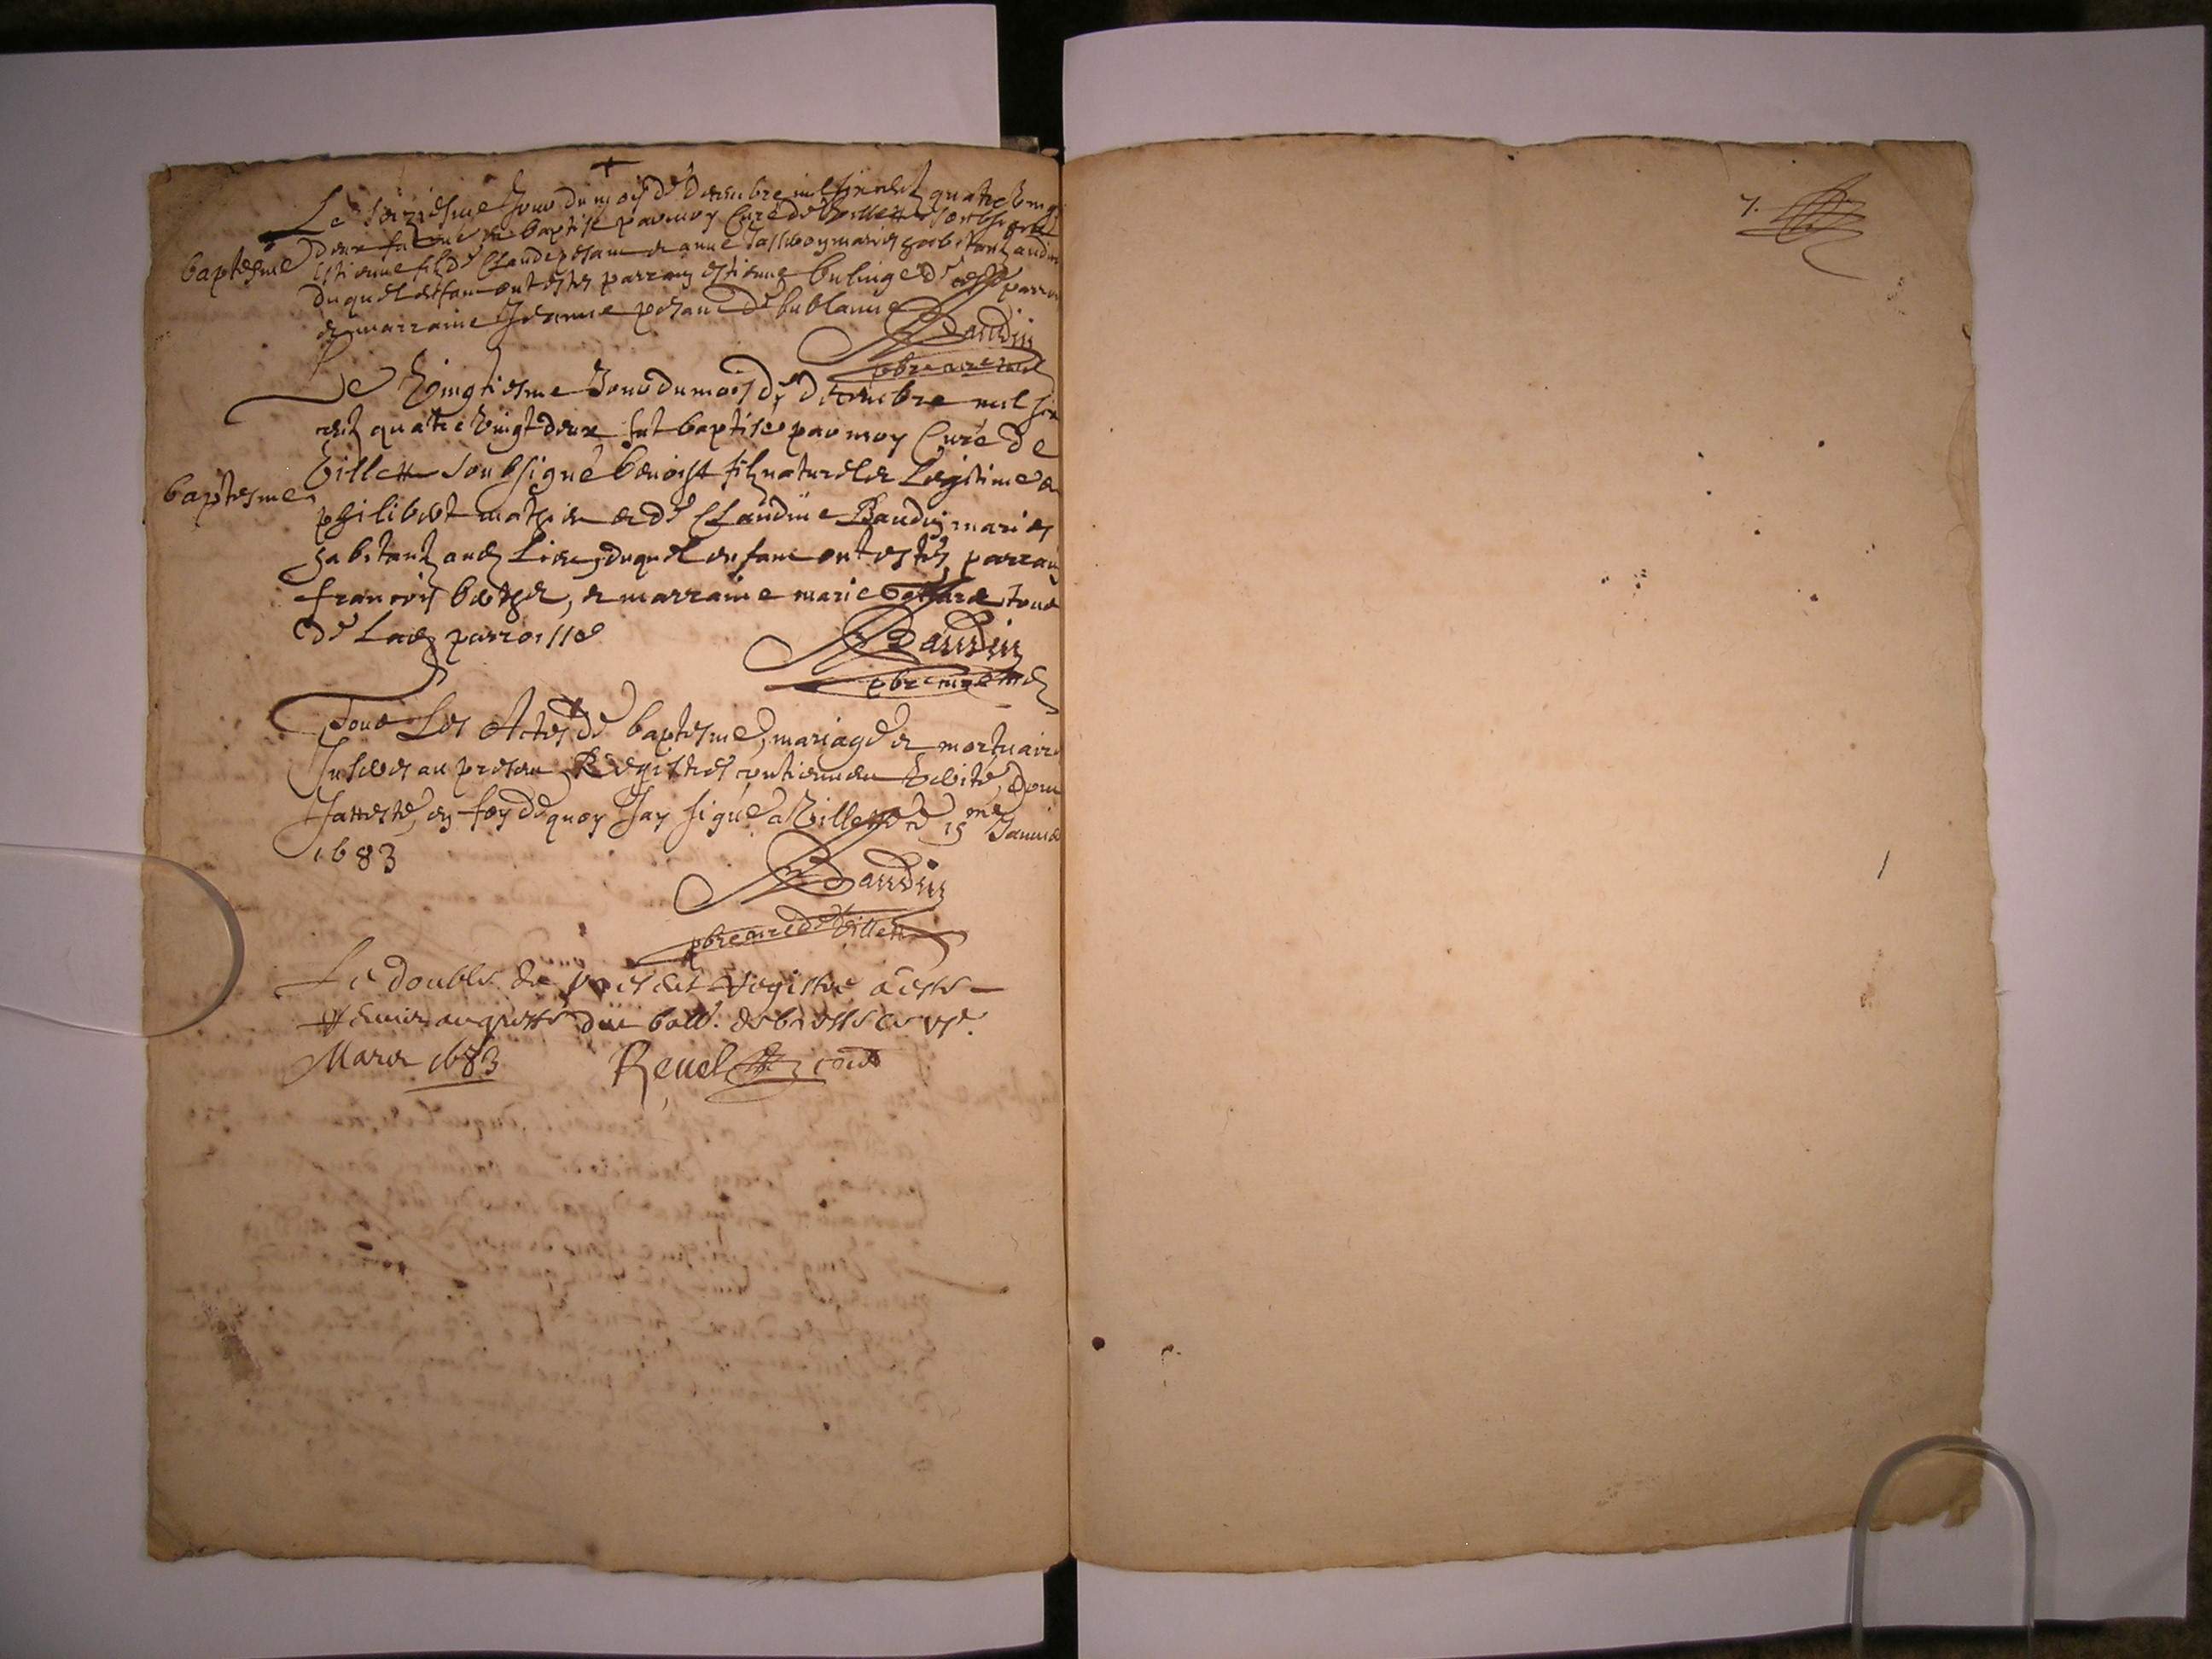 Le seiziesme Jour du mois de decembre mil six cent quatre ving
deux fut ne et baptise par moy Curé de Villette soubsigné
baptesme
Estienne filz de Claude pesant et anne mariés habitants audit
duquel enfant ont estés parrain estienne bulinge de parro
et marraine Jeanne pesant de bublanne
Baudin
pbre curé
Le Vingtiesme Jour du mois de decembre mil six
cent quatre vingt deux fut baptisé par moy Curé de
Villette soubsigné benoist filz naturel et Legitime de
baptesme
philibert mathieu et de Claudine Baudin mariés
habitants aud Lieu, duquel enfant ont estés parrain
francois berthet, et marraine marie tous
de Lad parroisse
Baudin
pbre curé
Tous Les Actes de baptesme, mariage et mortuaire
Inserés au present Registre contiennent Verité, Dont
Jatteste, en foy de quoy Jay signé a Villette ce 15me Janvier
1683
Baudin
pbre curé de Villette
Le double du present registre a esté
remis au greffe du baill. de bresse ce
Mars 1683 Revel
7.